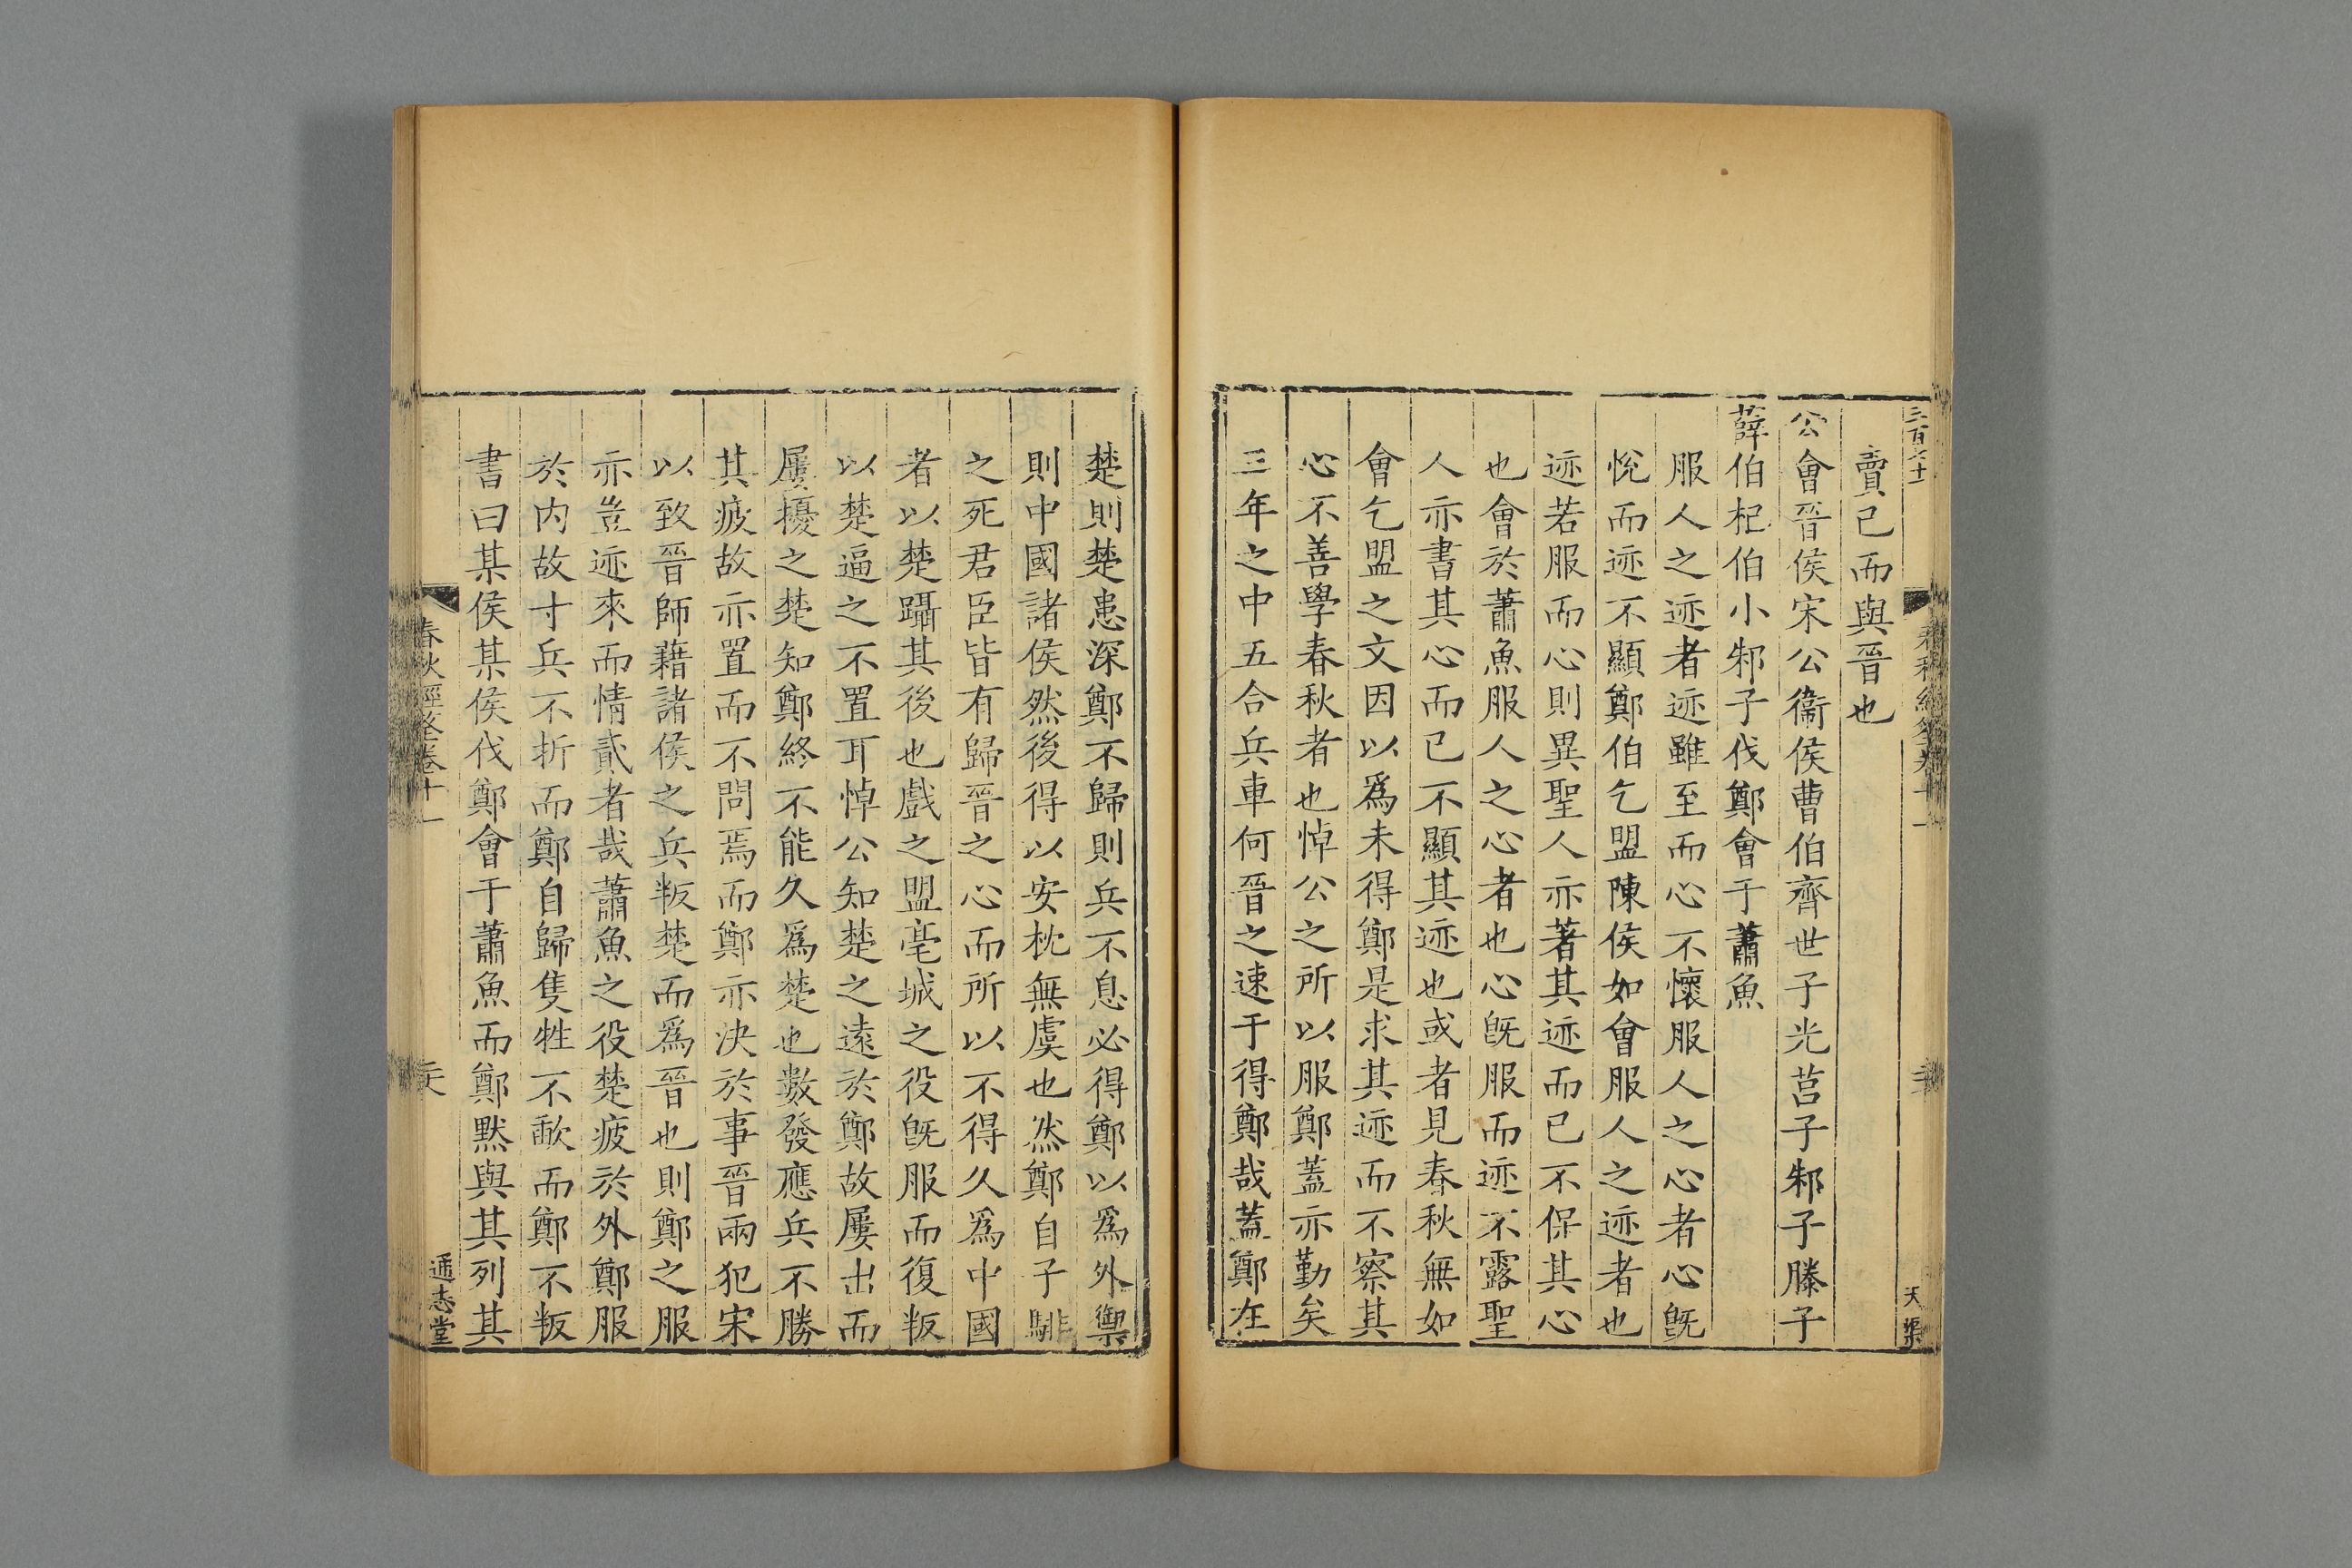 賣己而與晉也
公會晉侯宋公衞侯曹伯齊世子光莒子邾子滕子
薛伯杞伯小邾子伐鄭會于蕭魚
服人之迹者迹雖至而心不懷服人之心者心旣
悅而迹不顯鄭伯乞盟陳侯如會服人之迹者也
迹若服而心則異聖人亦著其迹而已不保其心
也會於蕭魚服人之心者也心旣服而迹不露聖
人亦書其心而已不顯其迹也或者見春秋無如
會乞盟之文因以爲未得鄭是求其迹而不察其
心不善學春秋者也悼公之所以服鄭蓋亦勤矣
三年之中五合兵車何晉之速于得鄭哉蓋鄭在
楚則楚患深鄭不歸則兵不息必得鄭以爲外禦
則中國諸侯然後得以安枕無虞也然鄭自子駟
之死君臣皆有歸晉之心而所以不得久爲中國
者以楚躡其後也戲之盟亳城之役旣服而復叛
以楚逼之不置耳悼公知楚之遠於鄭故屢出而
屢擾之楚知鄭終不能久爲楚也數發應兵不勝
其疲故亦置而不問焉而鄭亦決於事晉兩犯宋
以致晉師藉諸侯之兵叛楚而爲晉也則鄭之服
亦豈迹來而情貳者哉蕭魚之役楚疲於外鄭服
於内故寸兵不折而鄭自歸隻牲不歃而鄭不叛
書曰某侯某侯伐鄭會于蕭魚而鄭默與其列其
春秋經筌卷十一
通志堂